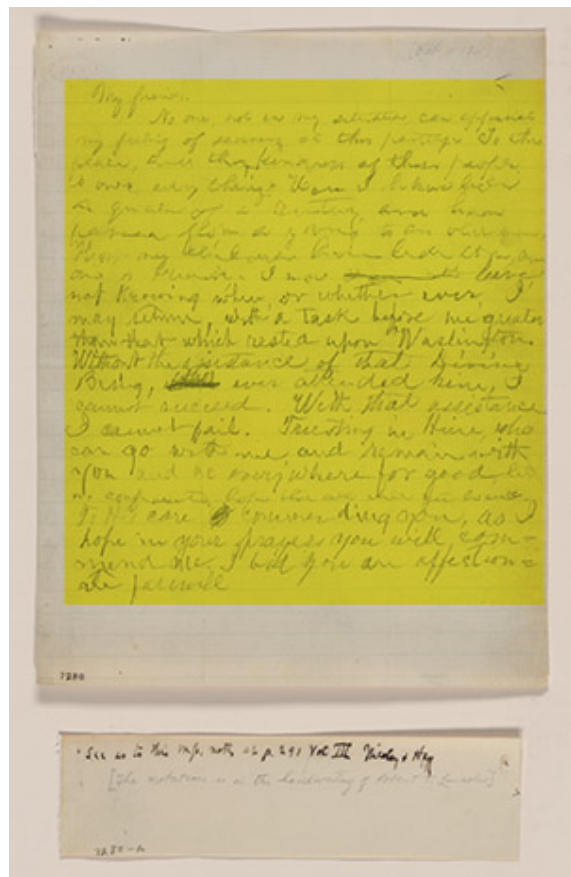 My friends.
No one, not in my situation, can appreciate
my feeling of sadness at this parting. To this
place, and the kindness of these people
I owe every thing. Here I have lived
a quarter of a century, and have
passed from a young to an old man.
Here my children have been born, and
one is buried. I now leave
not knowing when, or whether ever, I
may return, with a task before me greater
than that which rested upon Washington.
Without the assistance of that Divine
Being, ever attended him, I
cannot succeed. With that assistance
I cannot fail. Trusting in Him, who
can go with me and remain with
you and be everywhere for good, let
us confidently hope that all will yet be well
To His care commending you, as I
hope in your prayers you will com=
mend me, I bid you an affection=
ate farewell
7280
See as to this mss. note at p. 291 Vol III Nicolay & Hay
[The notation is in the handwriting of Robert Lincoln]
7280-A